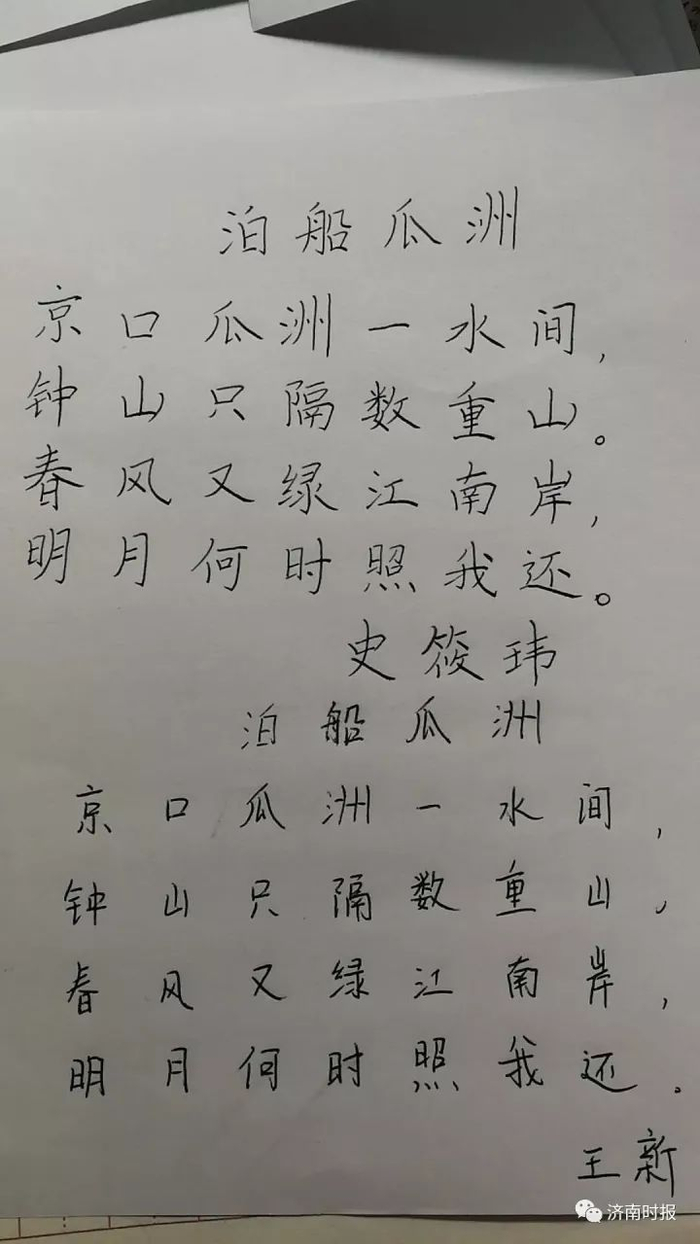 泊船瓜洲
京口瓜洲一水间,
钟山只隔数重山。
春风又绿江南岸,
明月何时照我还。
史筱玮
泊船瓜洲
京口瓜洲一水间,
钟山只隔数重山,
春风又绿江南岸,
明月何时照我还.
王新
济南时报